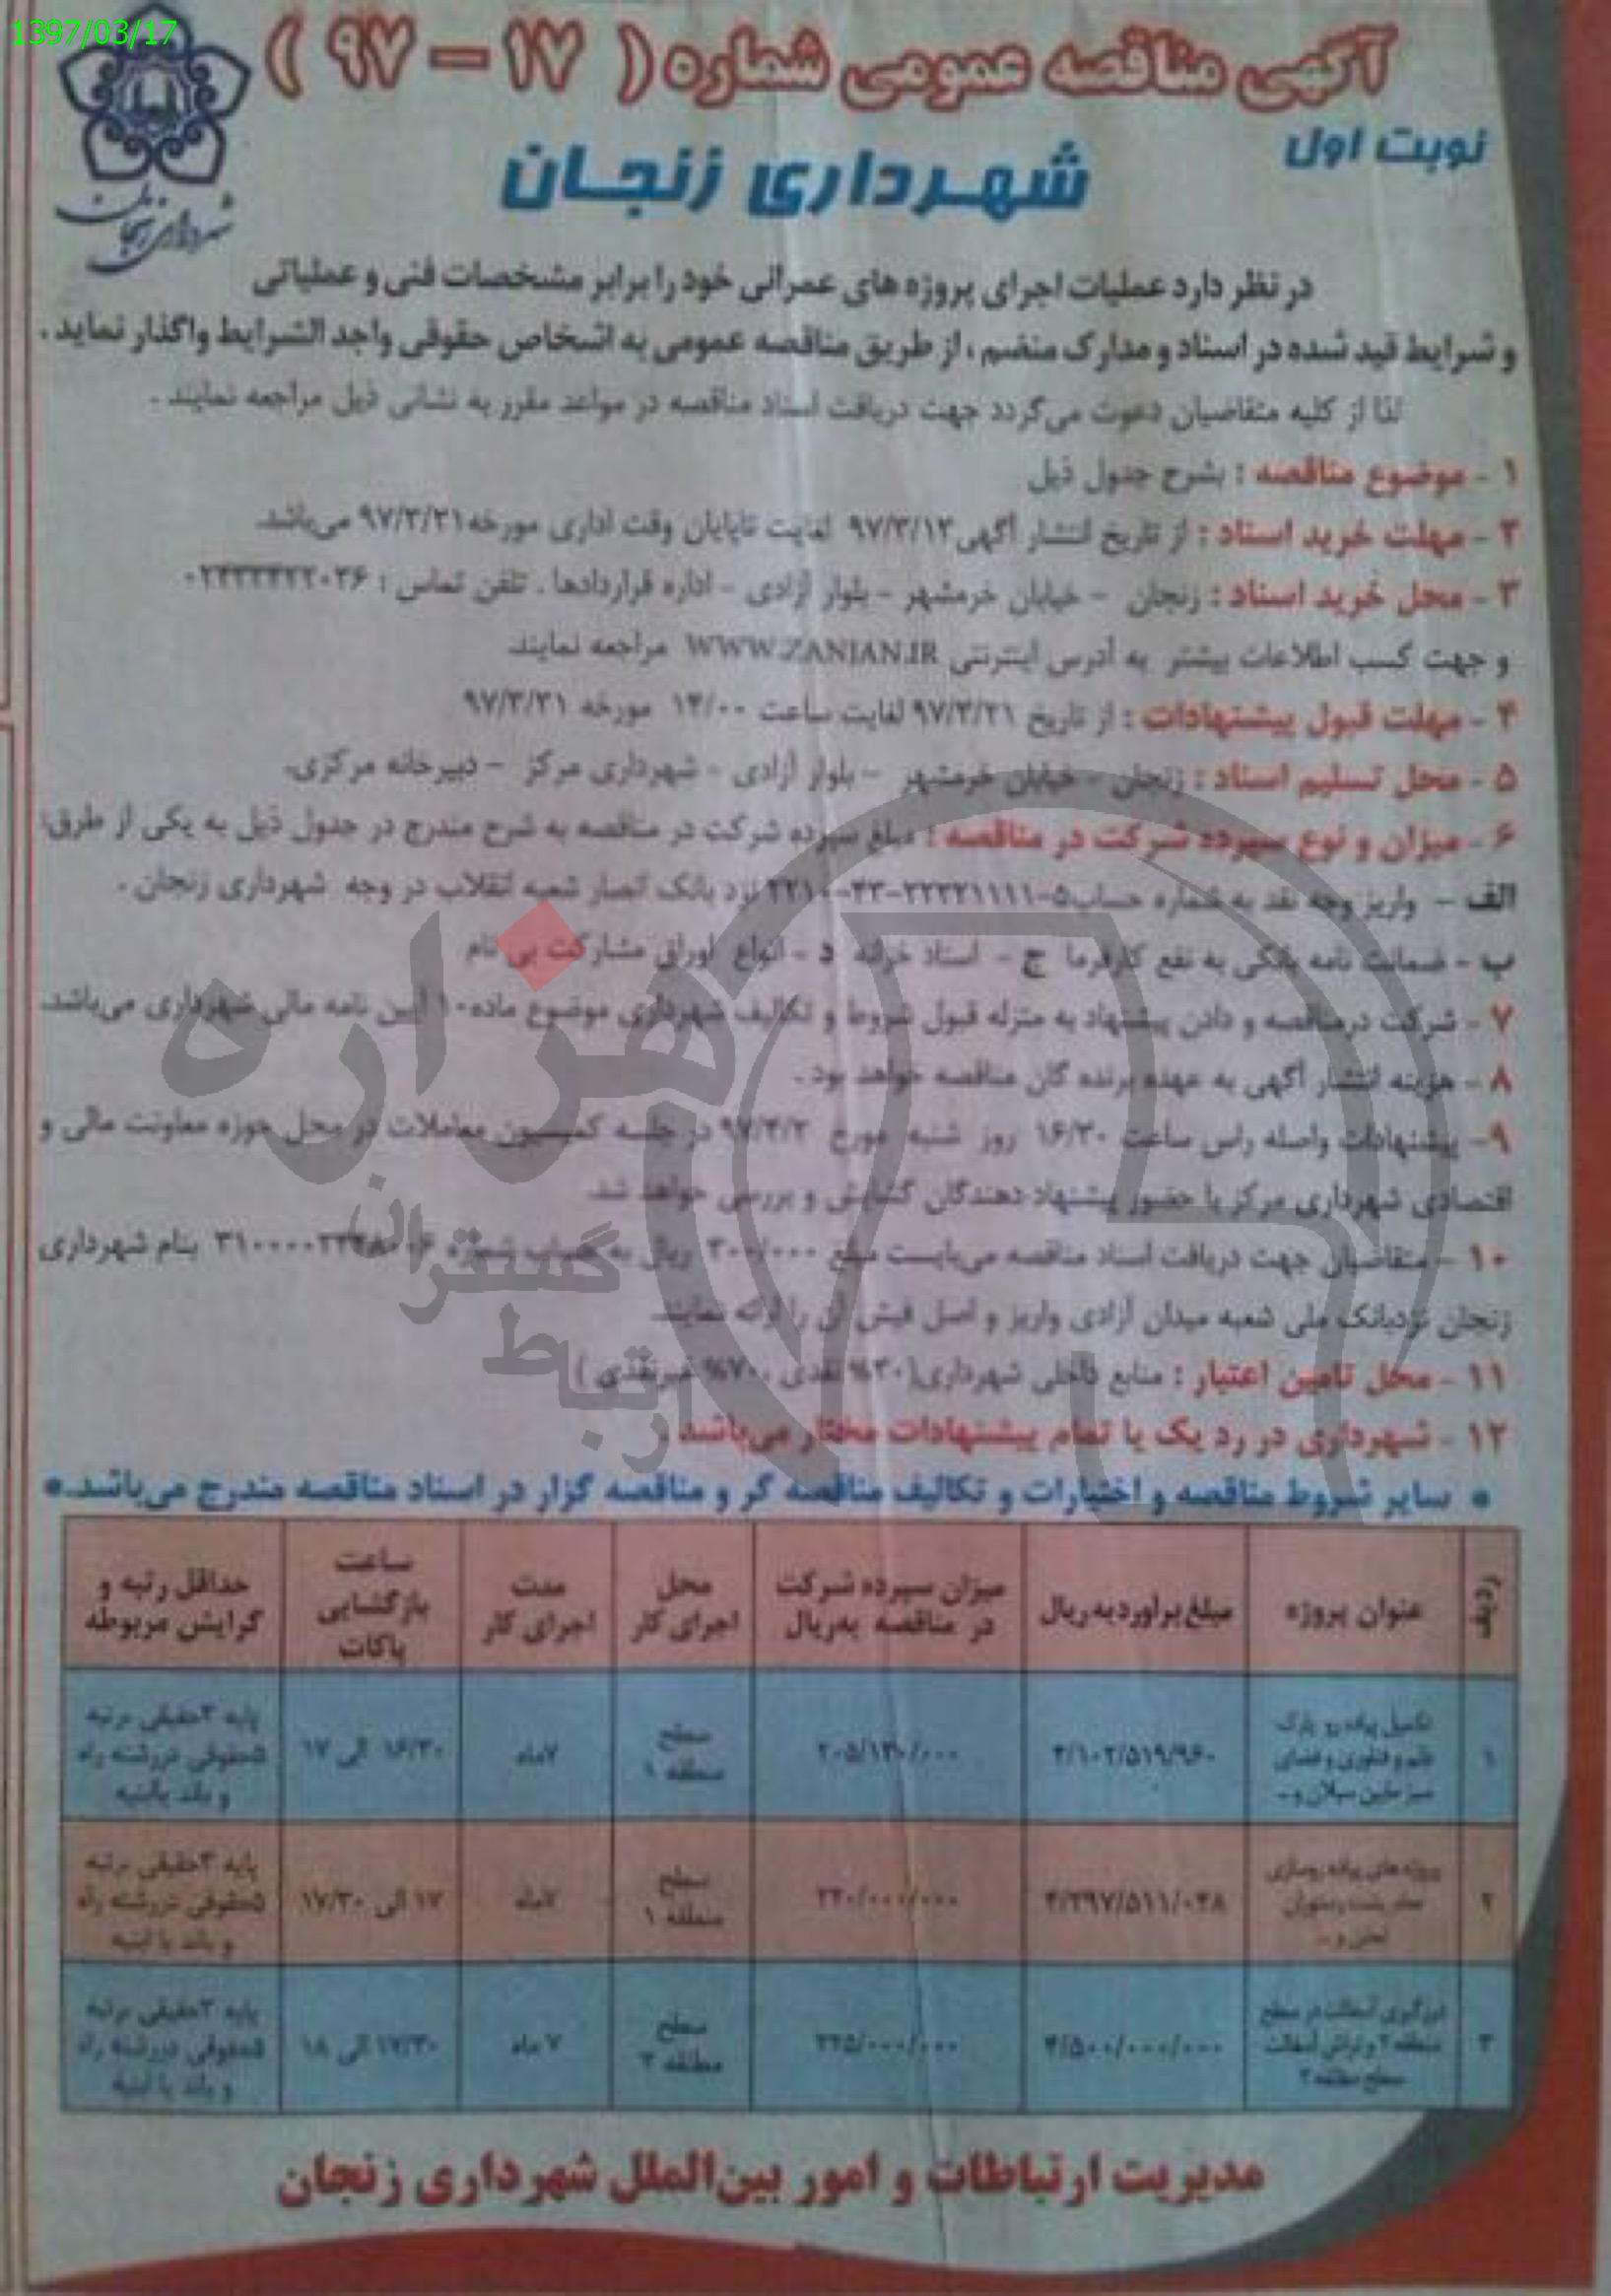 1397/03/17
آگهی مناقصه عمومی شماره ( ۱۷ - ۹۷ )
نوبت اول
شهرداری زنجان
شهرداری زنجان
در نظر دارد عملیات اجرای پروژه های عمرانی خود را برابر مشخصات فنی و عملیاتی
و شرایط قید شده در اسناد و مدارک منضم ، از طریق مناقصه عمومی به اشخاص حقوقی واجد الشرایط واگذار نماید .
لذا از کلیه متقاضیان دعوت می‌گردد جهت دریافت اسناد مناقصه در مواعد مقرر به نشانی ذیل مراجعه نمایند .
۱ - موضوع مناقصه : بشرح جدول ذیل
۲ - مهلت خرید اسناد : از تاریخ انتشار آگهی لغایت تاپایان وقت اداری مورخه می‌باشد.
۳ - محل خرید اسناد : زنجان - خیابان خرمشهر - بلوار آزادی - اداره قراردادها . تلفن تماس :
و جهت کسب اطلاعات بیشتر به آدرس اینترنتی WWW.ZANJAN.IR مراجعه نمایند.
۴ - مهلت قبول پیشنهادات : از تاریخ لغایت ساعت مورخه ۹۷/۳/۳۱
۵ - محل تسلیم اسناد : زنجان - خیابان خرمشهر - بلوار آزادی - شهرداری مرکز - دبیرخانه مرکزی.
۶ - میزان و نوع سپرده شرکت در مناقصه : مبلغ سپرده شرکت در مناقصه به شرح مندرج در جدول ذیل به یکی از طرق:
الف - واریز وجه نقد به شماره حساب نزد بانک انصار شعبه انقلاب در وجه شهرداری زنجان .
ب - ضمانت نامه بانکی به نفع کارفرما ج - اسناد خزانه د - انواع اوراق مشارکت بی نام
۷ - شرکت درمناقصه و دادن پیشنهاد به منزله قبول شروط و تکالیف شهرداری موضوع ماده۱۰ آیین نامه مالی شهرداری می‌باشد.
۸ - هزینه انتشار آگهی به عهده برنده گان مناقصه خواهد بود .
۹- پیشنهادات واصله راس ساعت ۱۶/۳۰ روز شنبه مورخ در جلسه کمسیون معاملات در محل حوزه معاونت مالی و
اقتصادی شهرداری مرکز با حضور پیشنهاد دهندگان گشایش و بررسی خواهد شد.
۱۰ - متقاضیان جهت دریافت اسناد مناقصه می‌بایست مبلغ ۳۰۰/۰۰۰ ریال به حساب شماره بنام شهرداری
زنجان نزدبانک ملی شعبه میدان آزادی واریز و اصل فیش آن را ارائه نمایند.
۱۱ - محل تامین اعتبار : منابع داخلی شهرداری(۳۰% نقدی ،۷۰% غیرنقدی )
۱۲ - شهرداری در رد یک یا تمام پیشنهادات مختار می‌باشد .
● سایر شروط مناقصه و اختیارات و تکالیف مناقصه گر و مناقصه گزار در اسناد مناقصه مندرج می‌باشد.●
هزاره
گستران
ارتباط
ردیف عنوان پروژه مبلغ برآورد به ریال میزان سپرده شرکت در مناقصه به‌ریال محل اجرای کار مدت اجرای کار ساعت بازگشایی پاکات حداقل رتبه و گرایش مربوطه
۱ تکمیل پیاده رو پارک علم و فناوری و فضای سبز سبلان و... سطح منطقه ۱ ۷ماه ۱۶/۳۰ الی ۱۷ پایه ۳حقیقی -رتبه ۵حقوقی دررشته راه و باند یاابنیه
۲ پروژه‌های پیاده روسازی سطح منطقه ۱ ۷ماه ۱۷ الی ۱۷/۳۰ پایه ۳حقیقی -رتبه ۵حقوقی دررشته راه و باند یا ابنیه
۳ درزگیری آسفالت در سطح منطقه ۲ و تراش آسفالت سطح منطقه ۲ ۴/۵۰۰/۰۰۰/۰۰۰ ۲۲۵/۰۰۰/۰۰۰ سطح منطقه ۲ ۷ ماه ۱۷/۳۰ الی ۱۸ پایه ۳حقیقی -رتبه ۵حقوقی دررشته راه و باند یا ابنیه
مدیریت ارتباطات و امور بین‌الملل شهرداری زنجان